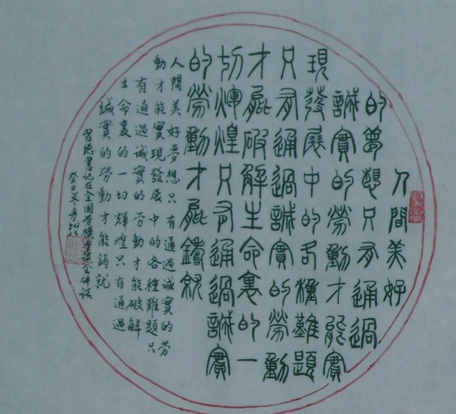 人間美好
的夢想只有通過
誠實的勞動才能實
現發展中的各種難題
只有通過誠實的勞動
才能破解生命裏的一
切輝煌只有通過誠實
的勞動才能鑄就
人間美好夢想只有通過誠實的勞
動才能實現發展中的各種難題只
有通過誠實的勞動才能破解
生命裏的一切輝煌只有通過
誠實的勞動才能鑄就
習總書記在全國勞模座談會講話
癸巳